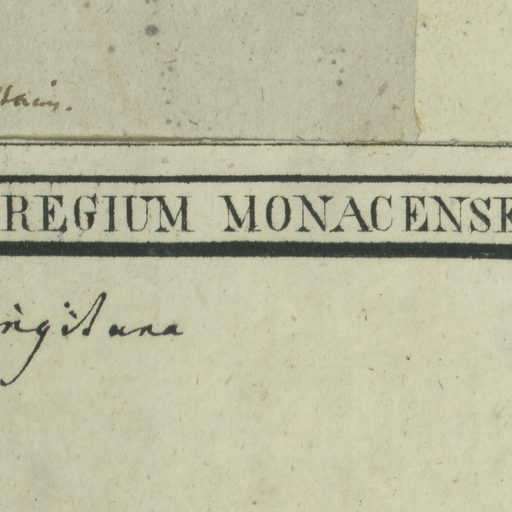 REGIUM MONACENSE
ingitana